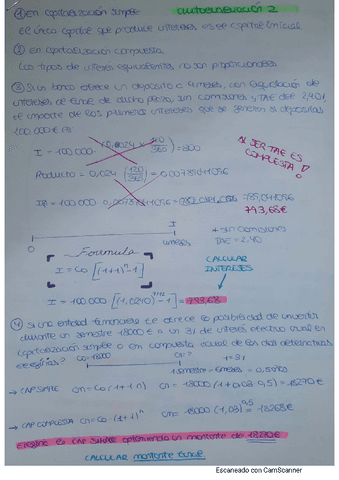 ① En capitalización simple autoevaluación 2
el único capital que produce intereses es el capital inicial.
② En capitalización compuesta
los tipos de interés equivalentes no son proporcionales
③ Si un banco ofrece un depósito a 4 meses, con liquidación de
intereses al final de dicho plazo, sin comisiones y TAE del 2,40%,
el importe de los primeros intereses que se generan si depositas
100.000 € es:
I = 100.000 · (0,0024 × 120/360) = 800
Producto = 0,024 (120/365)
IP = 100.000
793,68€
SI DER TAE ES
COMPUESTA!
0 I
4meses
+ sin comisiones
TAE = 2,40
Formula
I = Co [(1+i)ⁿ - 1]
CALCULAR
INTERESES
I = 100.000 [(1,0240) - 1] = 793,68
④ Si una entidad financiera te ofrece la posibilidad de invertir
durante un semestre 18000 € a un 8% de interés efectivo anual en
capitalización simple o en compuesta cual de las dos alternativas
elegirías? Co = 18000 Cn?
1 semestre = 6 meses = 0.5 año
→ CAP. SIMPLE Cn = Co (1 + i·n) Cn = 18000 (1 + 0,08 · 0,5) = 18720 €
→ CAP COMPUESTA Cn = Co (1+i)ⁿ Cn = 18000 (1,08)^0,5 =
Elegiría la cap simple obteniendo un montante de 18720 €
CALCULAR montante final
Escaneado con CamScanner